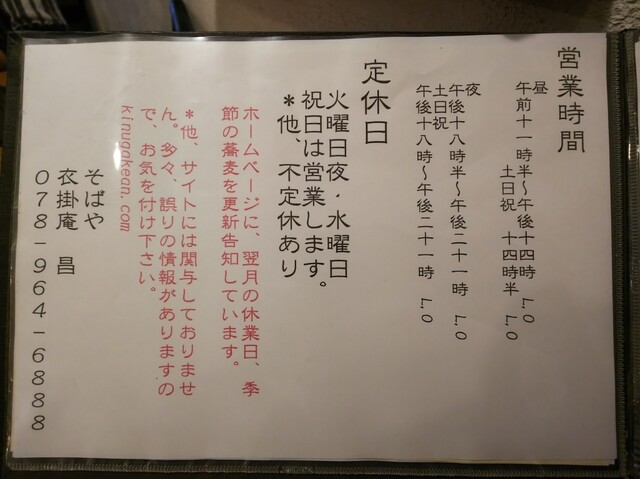 営業時間
昼
午前十一時半〜午後十四時 L.O
土日祝 十四時半 L.O
夜
午後十八時半〜午後二十一時 L.O
土日祝
午後十八時〜午後二十一時 L.O
定休日
火曜日夜・水曜日
祝日は営業します。
*他、不定休あり
ホームページに、翌月の休業日、季
節の蕎麦を更新告知しています。
*他、サイトには関与しておりませ
ん。多々、誤りの情報がありますの
で、お気を付け下さい。
kinugakean.com
そばや
衣掛庵 昌
078-964-6888